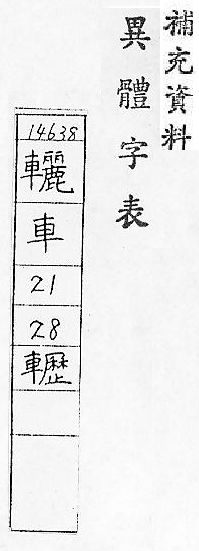 補充資料
異體字表
14638
車
21
28
轣